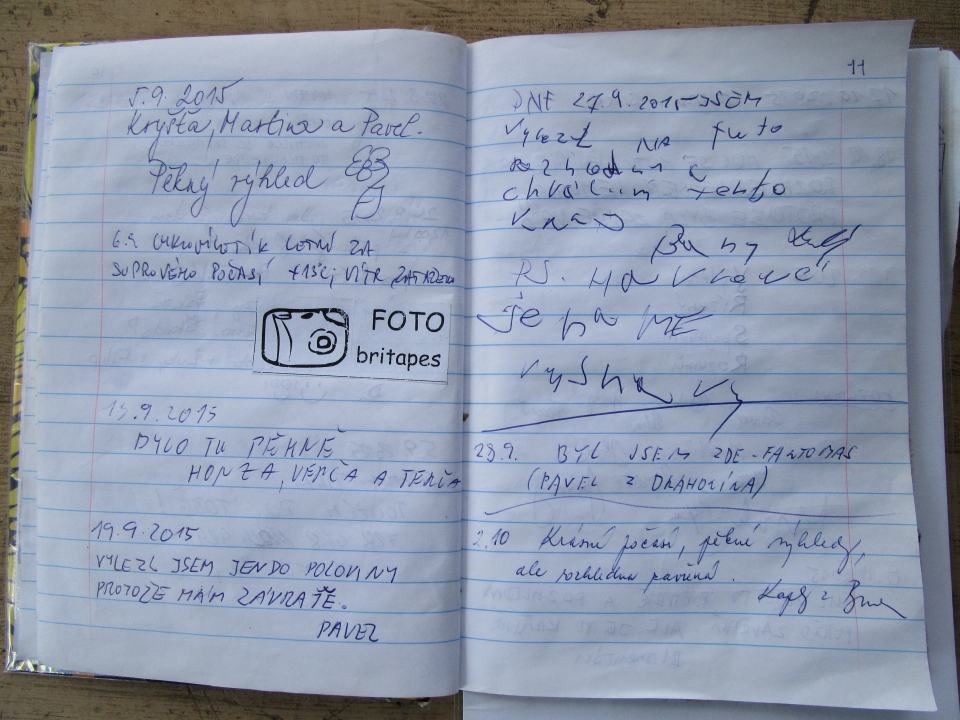 5.9. 2015
Kryšťa, Martina a Pavel.
Pěkný výhled
6.9. LETNÍ ZA
SUPROVÉHO POČASÍ, +13°C, VÍTR, ZATAŽENO
FOTO
britapes
13.9.2015
BYLO TU PĚKNĚ
HONZA, VERČA A TERČA
19.9.2015
VYLEZL JSEM JEN DO POLOVINY
PROTOŽE MÁM ZÁVRATĚ.
PAVEL
11
DNE 27.9.2015 JSEM
vylezl NA tuto
rozhlednu a
chválím tento
PS.
je na
28.9. BYL JSEM ZDE - FANTOMAS
(PAVEL Z DRAHOLÍNA)
2.10 Krásné počasí, pěkné výhledy,
ale rozhledna
z Brna